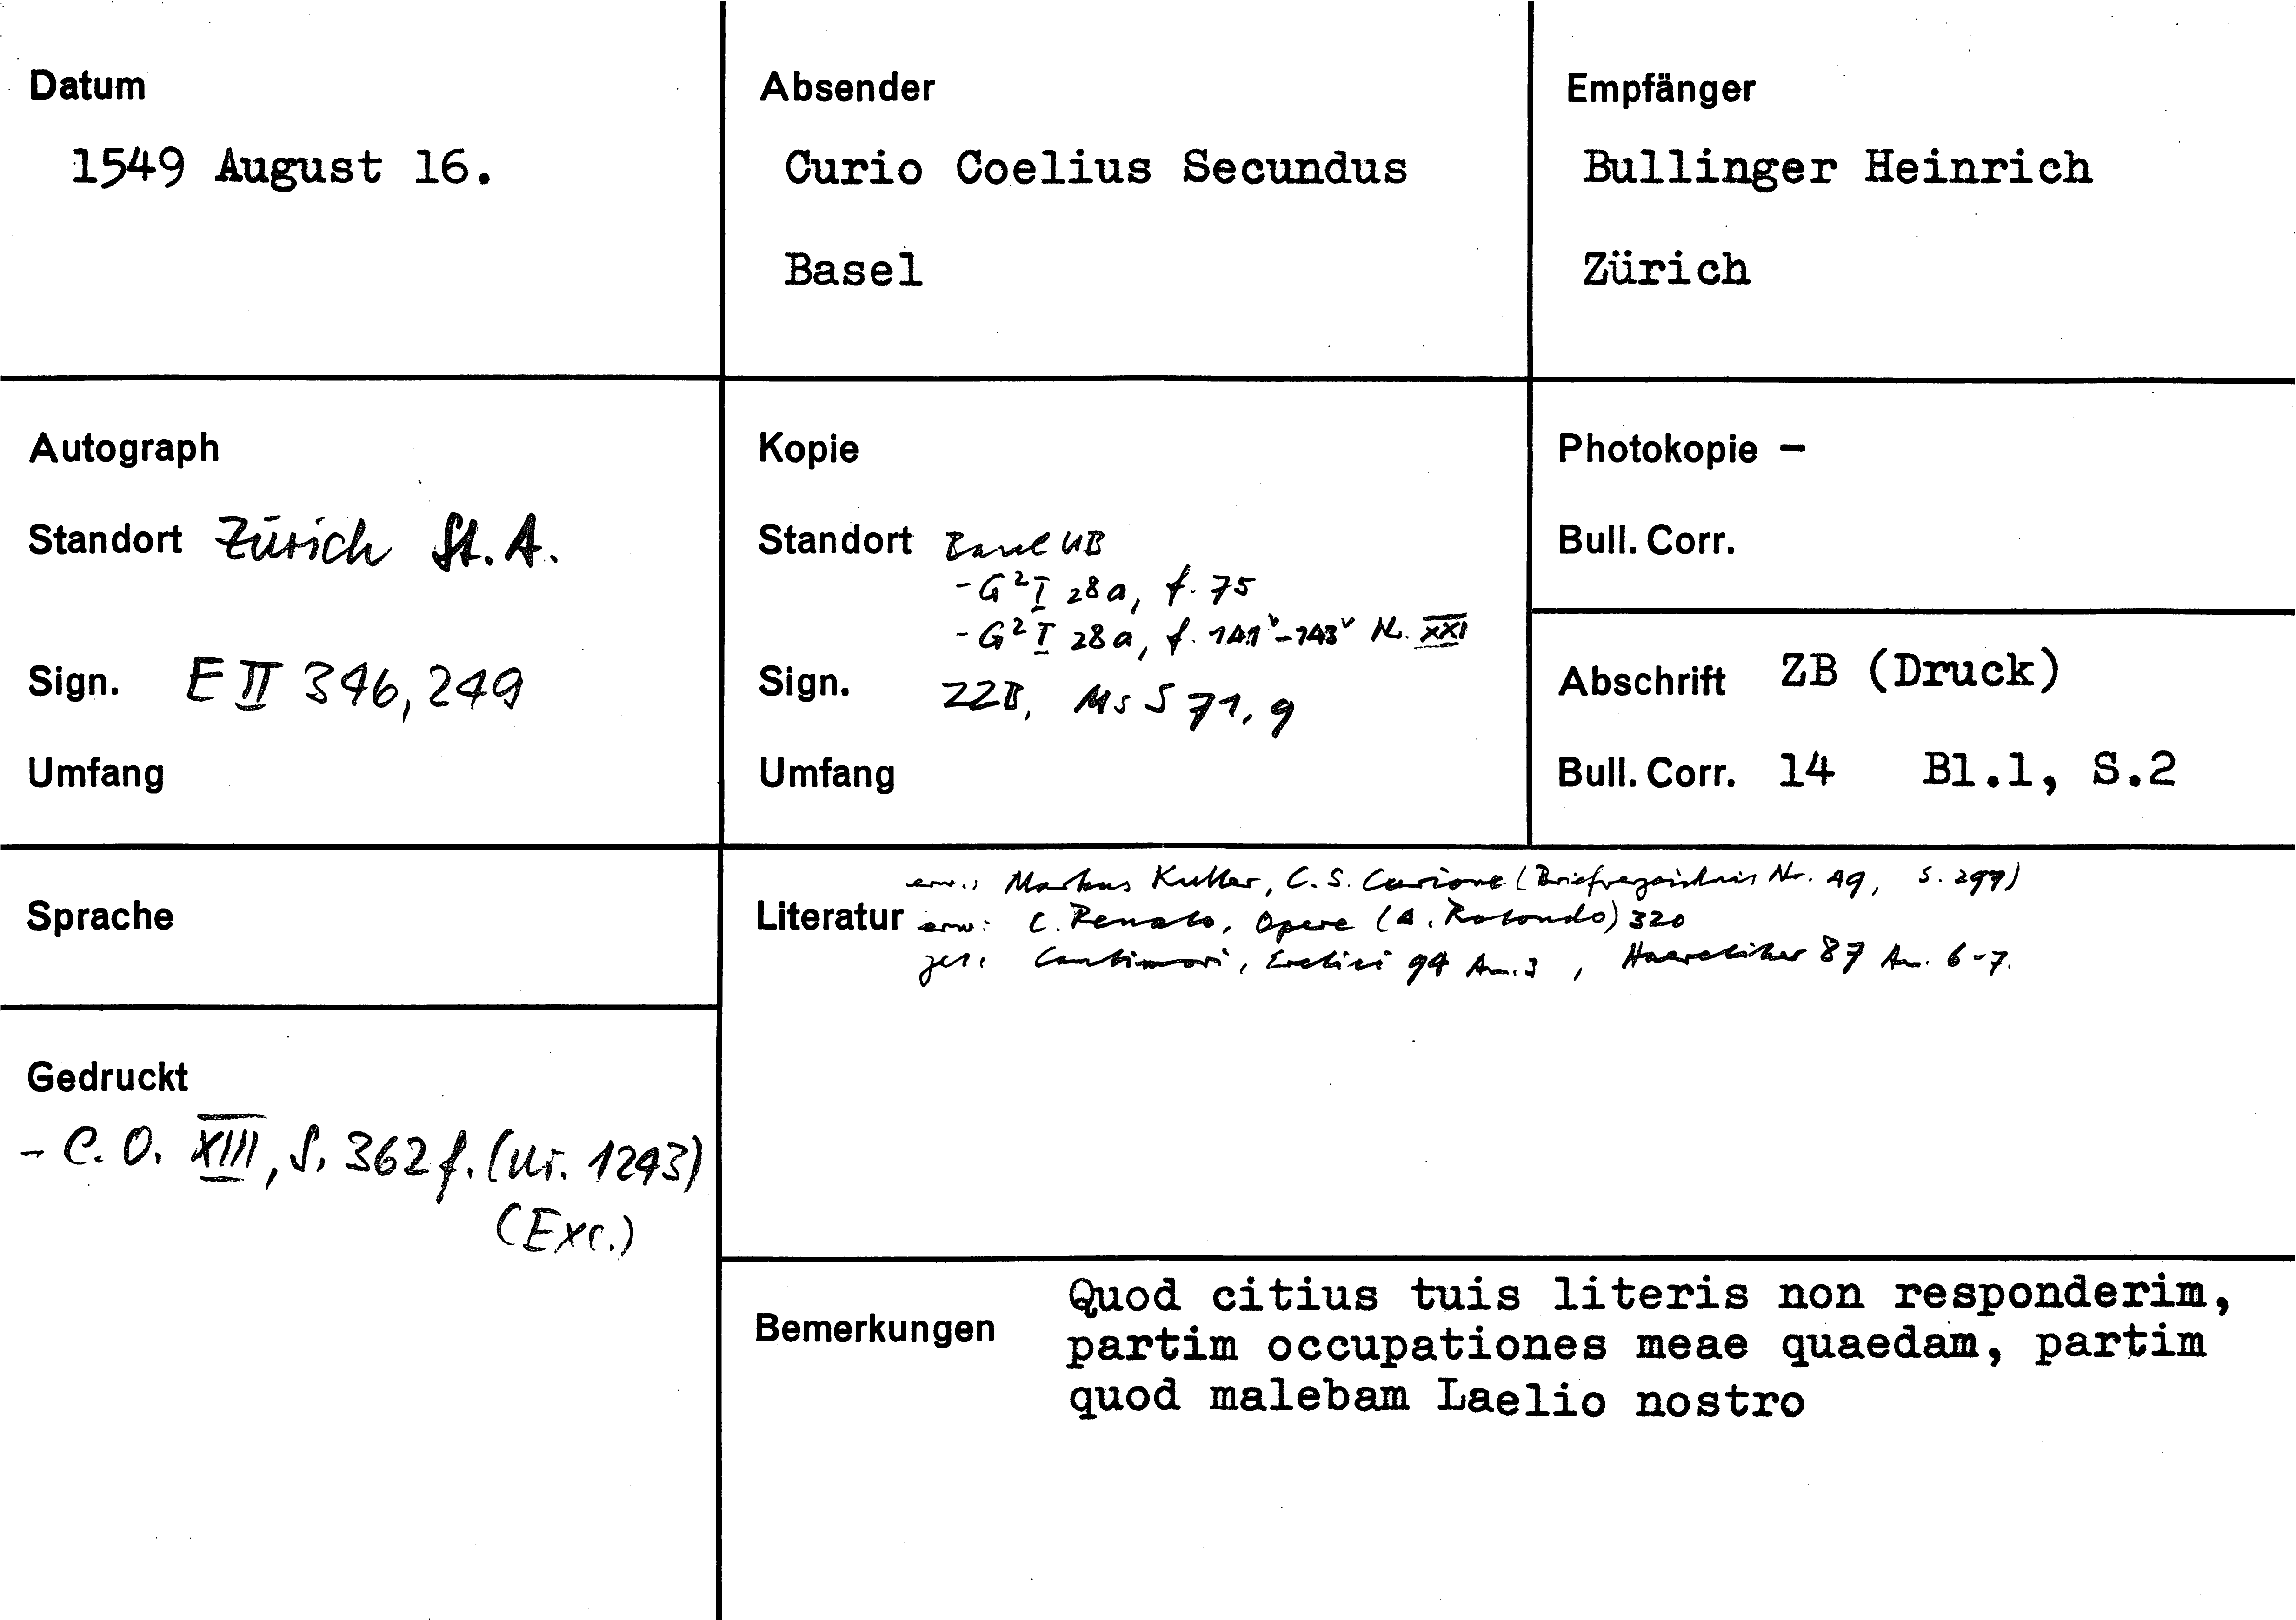 Datum
1549 August 16.
Absender
Curio Coelius Secundus
Basel
Empfänger
Bullinger Heinrich
Zürich
Autograph
Standort Zürich St. A.
Sign. E II 346, 249
Umfang
Kopie
Standort Basel UB
- G² I 28a, f. 75
- G² I 28a, f. 141ᵛ-143ᵛ Nr. XXI
Sign. ZZB, Ms S 71, 9
Umfang
Photokopie –
Bull. Corr.
Abschrift ZB (Druck)
Bull. Corr. 14 Bl.1, S.2
Sprache
Literatur
erw.: Markus Kutter, C. S. Curione (Briefverzeichnis Nr. 49, S. 297)
erw: C. Renato, Opere (A. Rotondo) 320
zit. Cantimori, Eretici 94 An. 3, Haeretiker 87 An. 6-7.
Gedruckt
- C. O. XIII, S. 362 f. (Nr. 1243)
(Exc.)
Bemerkungen
Quod citius tuis literis non responderim,
partim occupationes meae quaedam, partim
quod malebam Laelio nostro